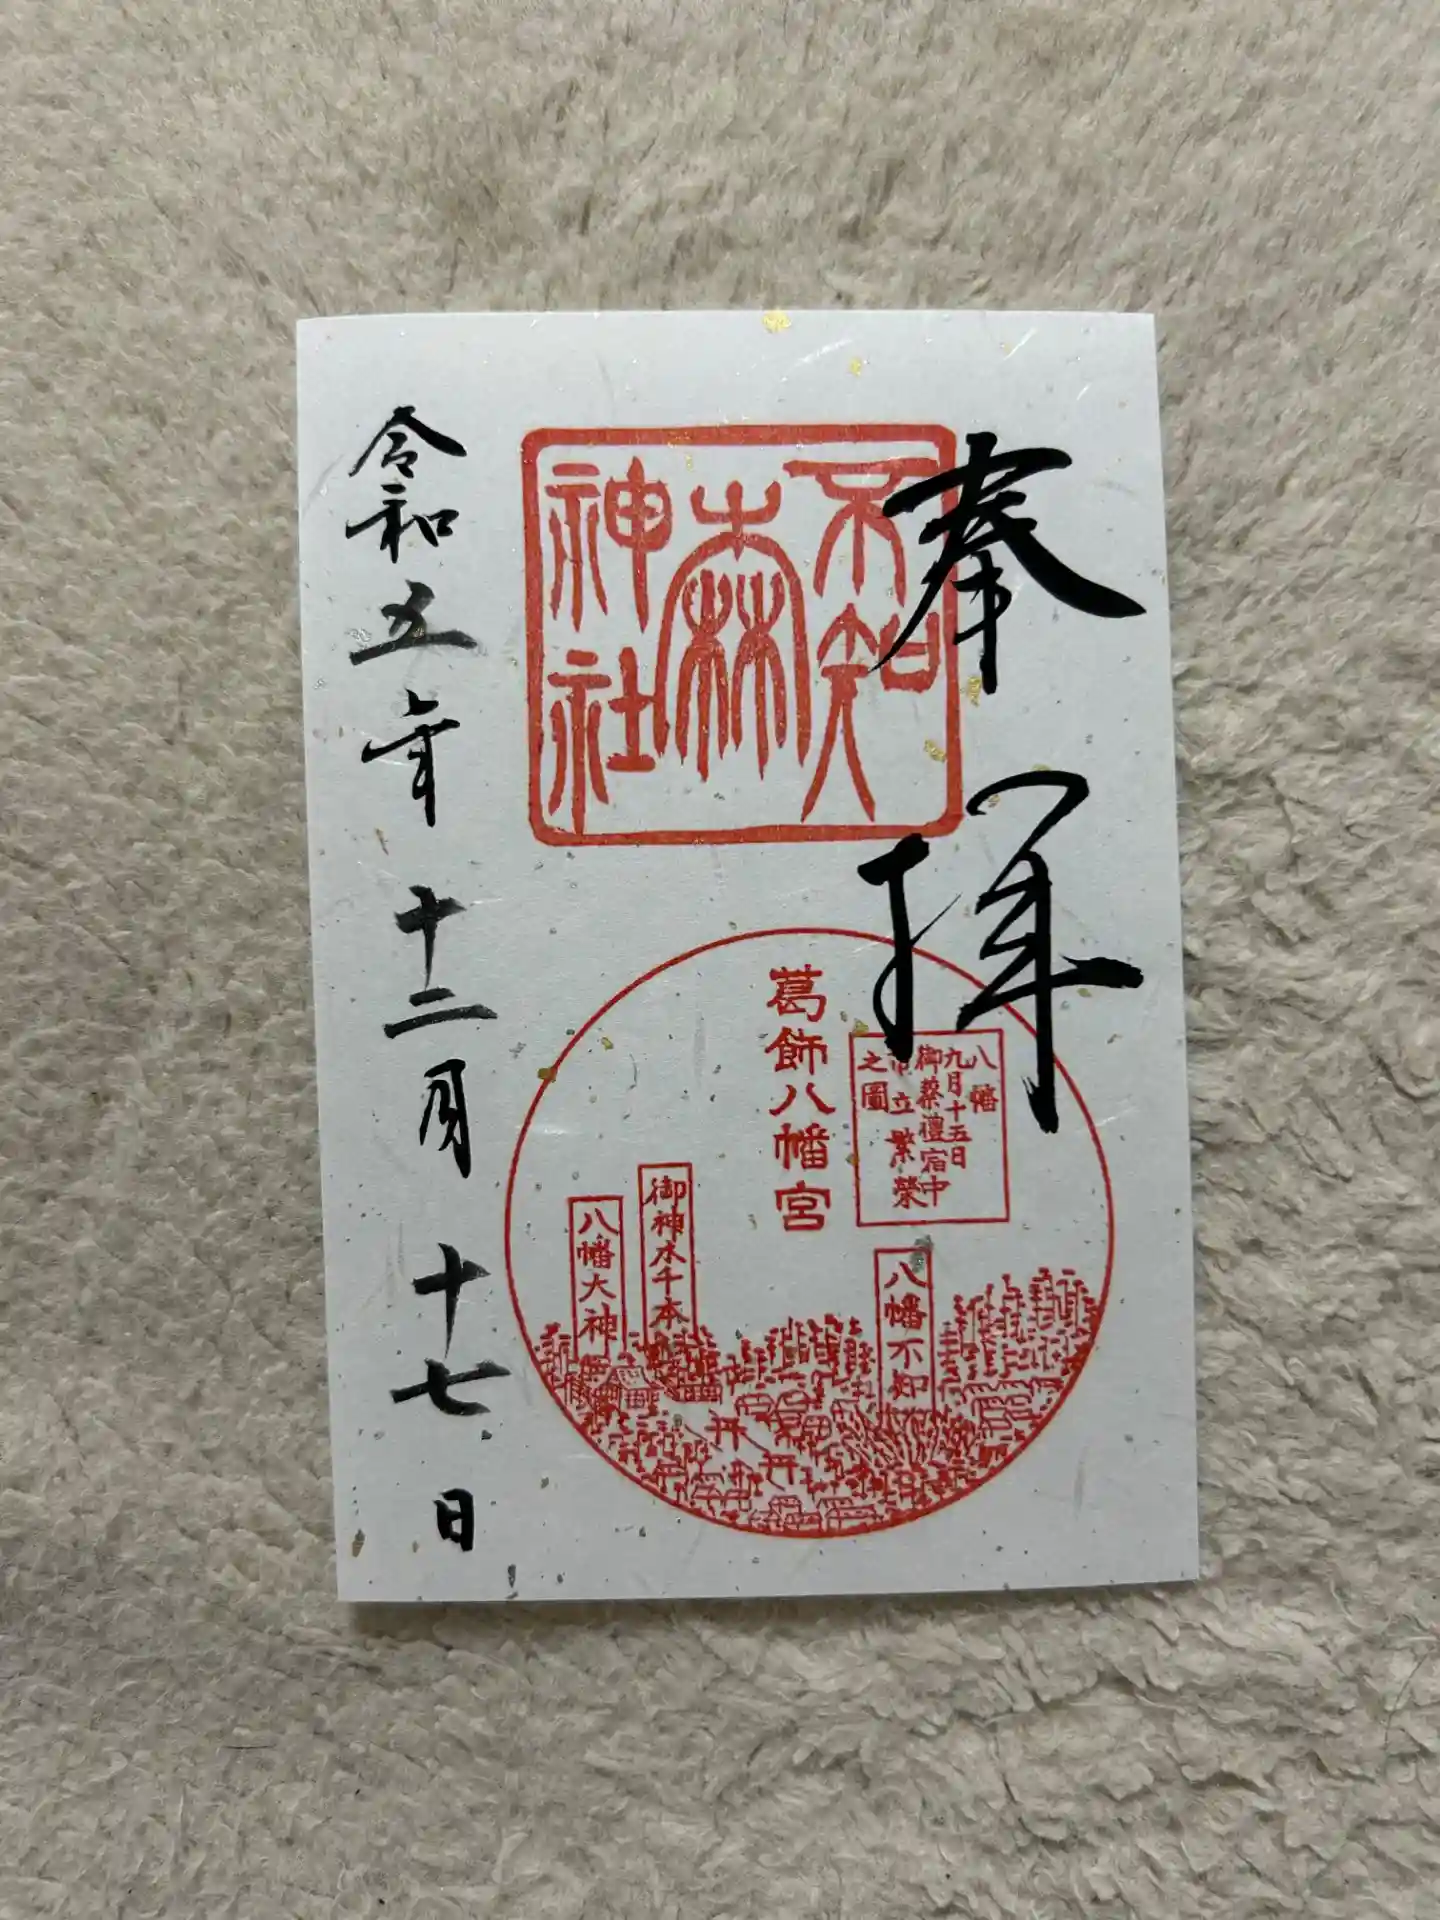 奉拝
不知
森
神社
葛飾八幡宮
八幡
九月十五日
御祭禮宿中
市立繁榮
之圖
八幡不知
御神木千本
八幡大神
令和五年十二月十七日